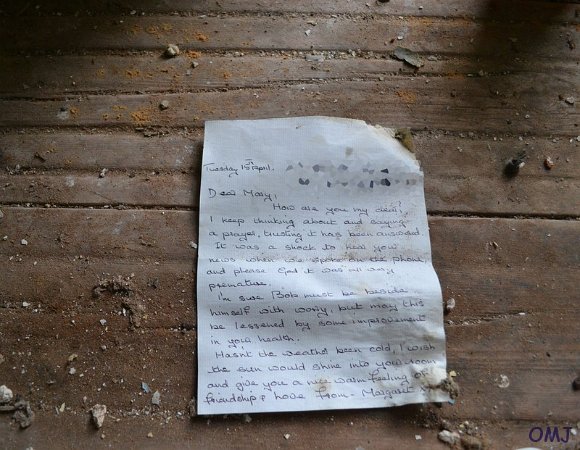 Tuesday 1st April.
Dear Mary,
How are you my dear,
I keep thinking about and saying
a prayer, trusting it has been answered.
It was a shock to hear your
news when we spoke on the phone,
and please God it was all very
premature.
I'm sure Bob must be beside
himself with worry, but may this
be lessened by some improvement
in your health.
Hasn't the weather been cold, I wish
the sun would shine into your room
and give you a nice warm feeling of
friendship & love from. Margaret
OMJ